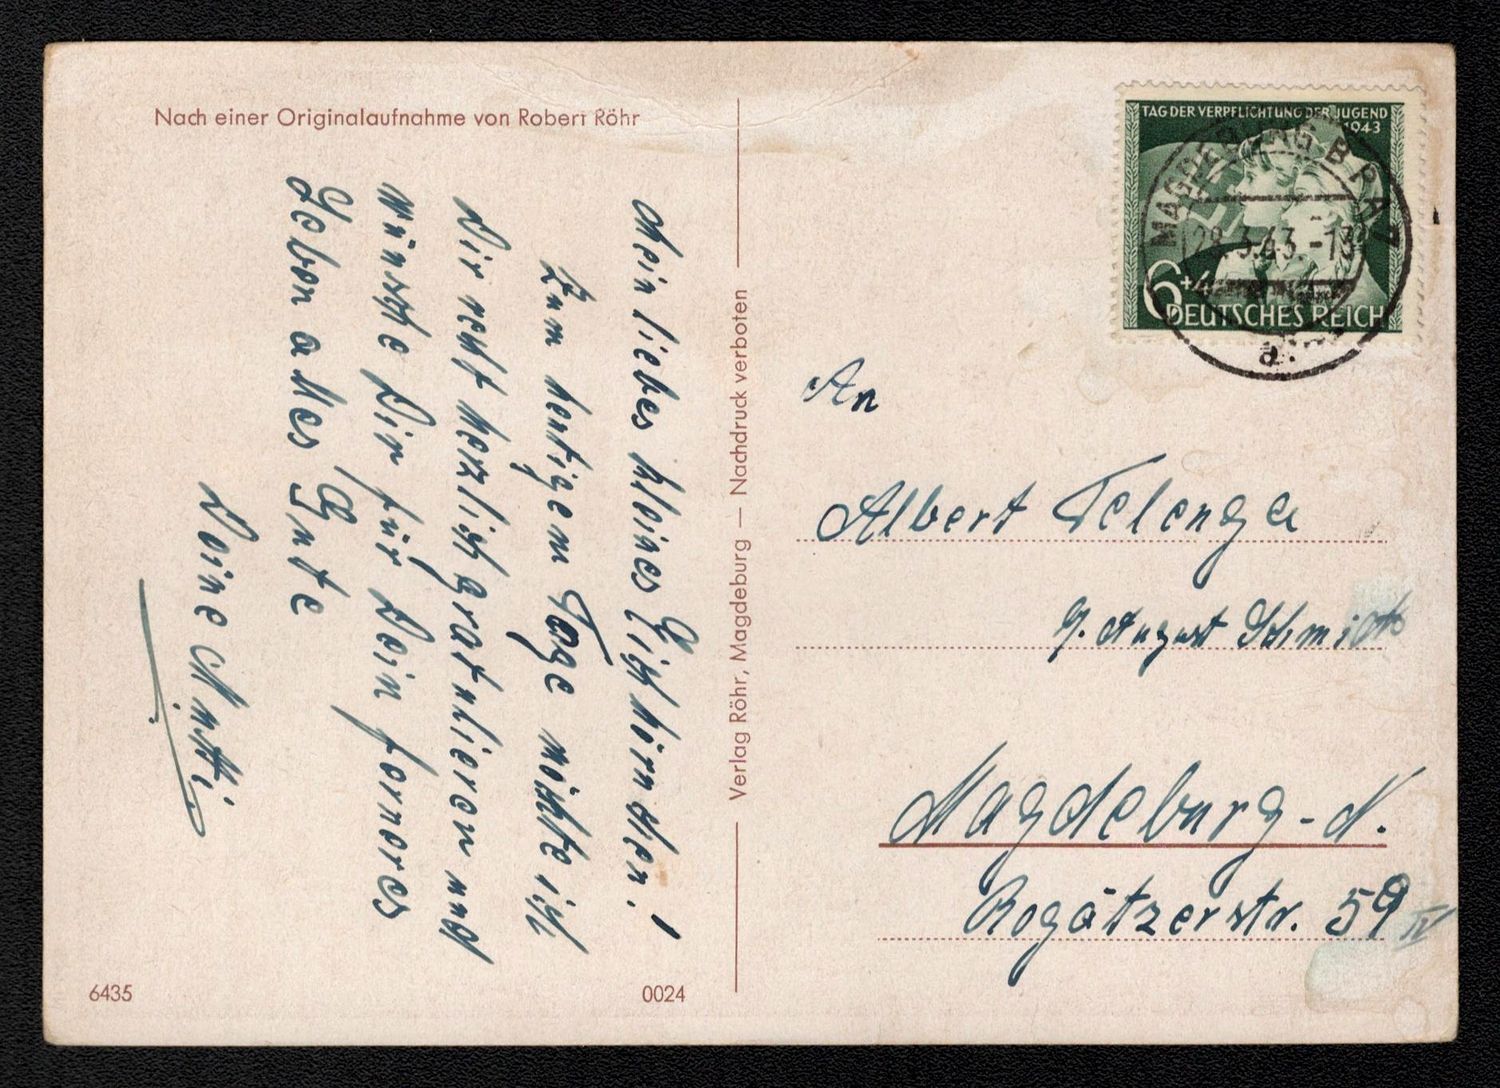 Nach einer Originalaufnahme von Robert Röhr
Mein liebes kleines Eichhörnchen!
Zum heutigen Tage möchte ich
Dir recht herzlich gratulieren und
wünsche Dir für Dein ferneres
Leben alles Gute
Deine Mutti
6435
0024
Verlag Röhr, Magdeburg — Nachdruck verboten
TAG DER VERPFLICHTUNG DER JUGEND
1943
6+4
DEUTSCHES REICH
MAGDEBURG
28.3.43.-13
a
An
Albert Telenga
b. August Schmidt
Magdeburg-N.
Rogätzerstr. 59 IV